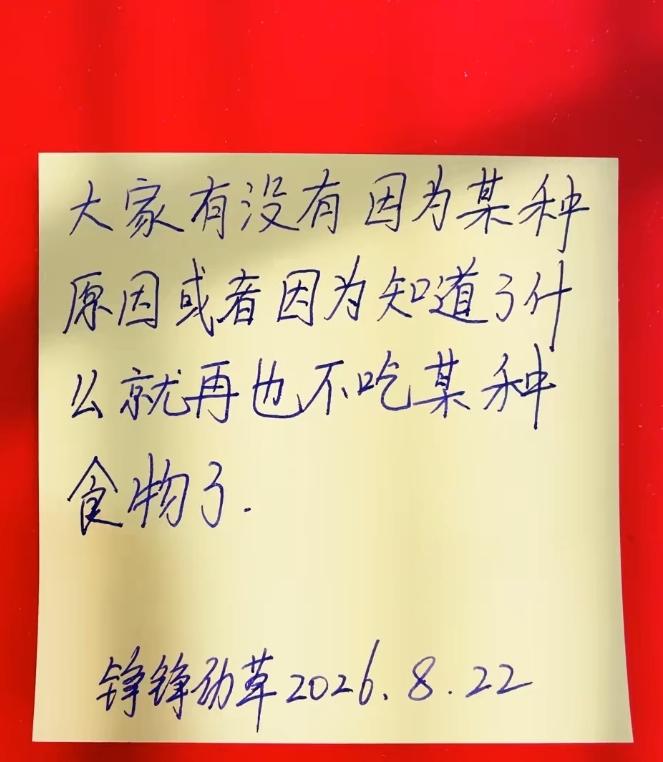 大家有没有因为某种
原因或者因为知道了什
么就再也不吃某种
食物了.
铮铮劲草2026.8.22